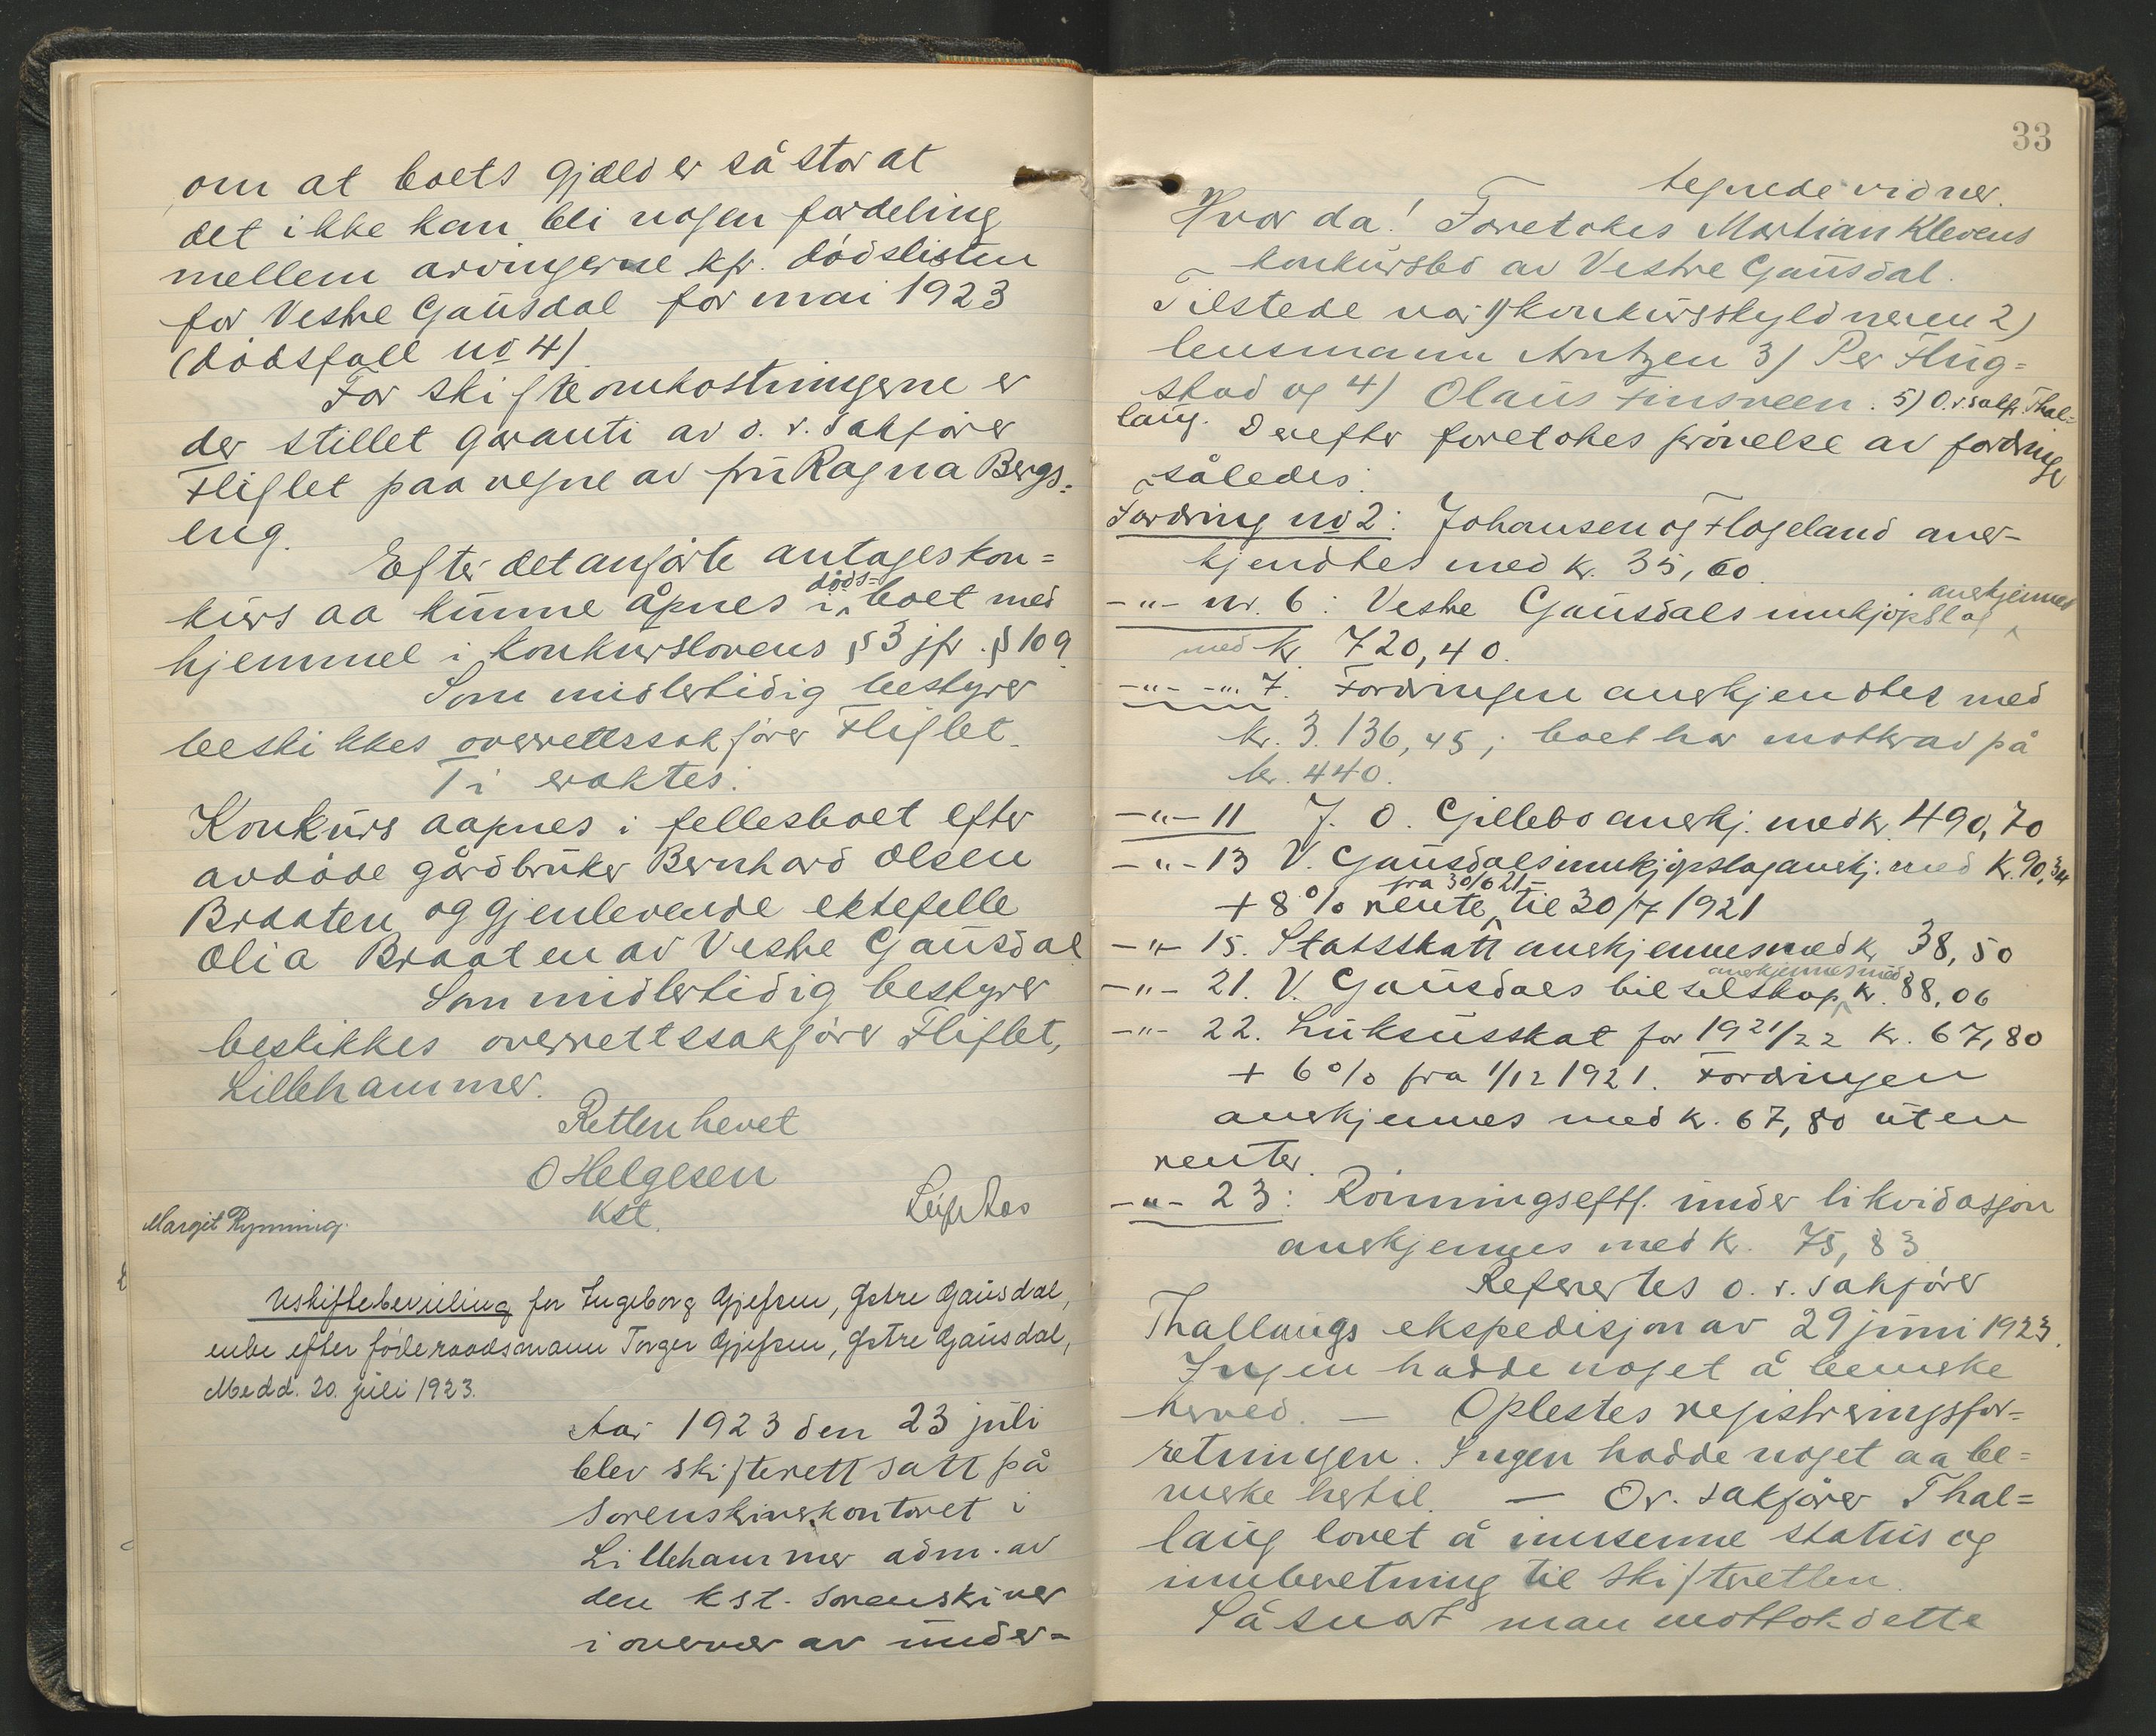 om at boets gjæld er så stor at
det ikke kan bli nogen fordeling
mellem arvingerne kfr. dødslisten
for Vestre Gausdal for mai 1923
(dødsfall no 4)
For skifteomkostningerne er
der stillet garanti av o.r.sakfører
Fliflet paa vegne av fru Ragna Bergs=
eng.
Efter det anførte antages kon=
kurs aa kunne åpnes i døds=boet med
hjemmel i konkurslovens § 3 jfr. § 109
Som midlertidig bestyrer
beskikkes overrettssakfører Fliflet.
Ti eraktes:
Konkurs aapnes i fellesboet efter
avdøde gårdbruker Bernhard Olsen
Braaten og gjenlevende ektefelle
Olia Braaten av Vestre Gausdal
Som midlertidig bestyrer
beskikkes overrettssakfører Fliflet,
Lillehammer.
Retten hevet
O Helgesen
kst.
Leif Aas
Margit Rynning.
Uskiftebevilling for Ingeborg Gjefsen, Østre Gausdal,
enke efter føderaadsmann Torger Gjefsen, Østre Gausdal,
Medd. 20. juli 1923.
Aar 1923 den 23 juli
blev skifterett satt på
sorenskriverkontoret i
Lillehammer adm. av
den kst. sorenskriver
i overvær av under=
33
tegnede vidner.
Hvor da! Foretokes Martian Klevens
konkursbo av Vestre Gausdal.
Tilstede var 1) konkursskyldneren 2)
lensmann Arntzen 3) Per Flug=
stad og 4) Olaus Finsveen. 5) O.r.sakf. Thal=
laug. Derefter foretokes prøvelse av fordringer
således:
Fordring no 2: Johansen og Flageland aner-
kjendtes med kr. 35,60.
-"- nr. 6: Vestre Gausdals innkjøpslag anerkjennes
med kr. 720,40.
-"- -"- 7. Fordringen anerkjendtes med
kr. 3.136,45; boet har motkrav på
kr. 440.
-"- 11 J. O. Gillebo anerkj. med kr. 490,70
-"- 13 V. Gausdals innkjøpslag anerkj. med kr. 90,34
+ 8 % rente fra 30/6 21 - til 30/7 1921
-"- 15. Statsskatt anerkjennes med kr. 38,50
-"- 21. V. Gausdals bilselskap anerkjennes med kr. 88,06
-"- 22. Luksusskat for 1921/22 kr. 67,80
+ 6 % fra 1/12 1921. Fordringen
anerkjennes med kr. 67,80 uten
renter.
-"- 23: Rønningseftf. under likvidasjon
anerkjennes med kr. 75,83
Referertes o.r.sakfører
Thallaugs ekspedisjon av 29 juni 1923.
Ingen hadde noget å bemerke
herved. — Oplestes registreringsfor=
retningen. Ingen hadde noget aa be=
merke hertil. — Or. sakfører Thal=
laug lovet å innsenne status og
innberetning til skifteretten.
Så snart man mottok dette